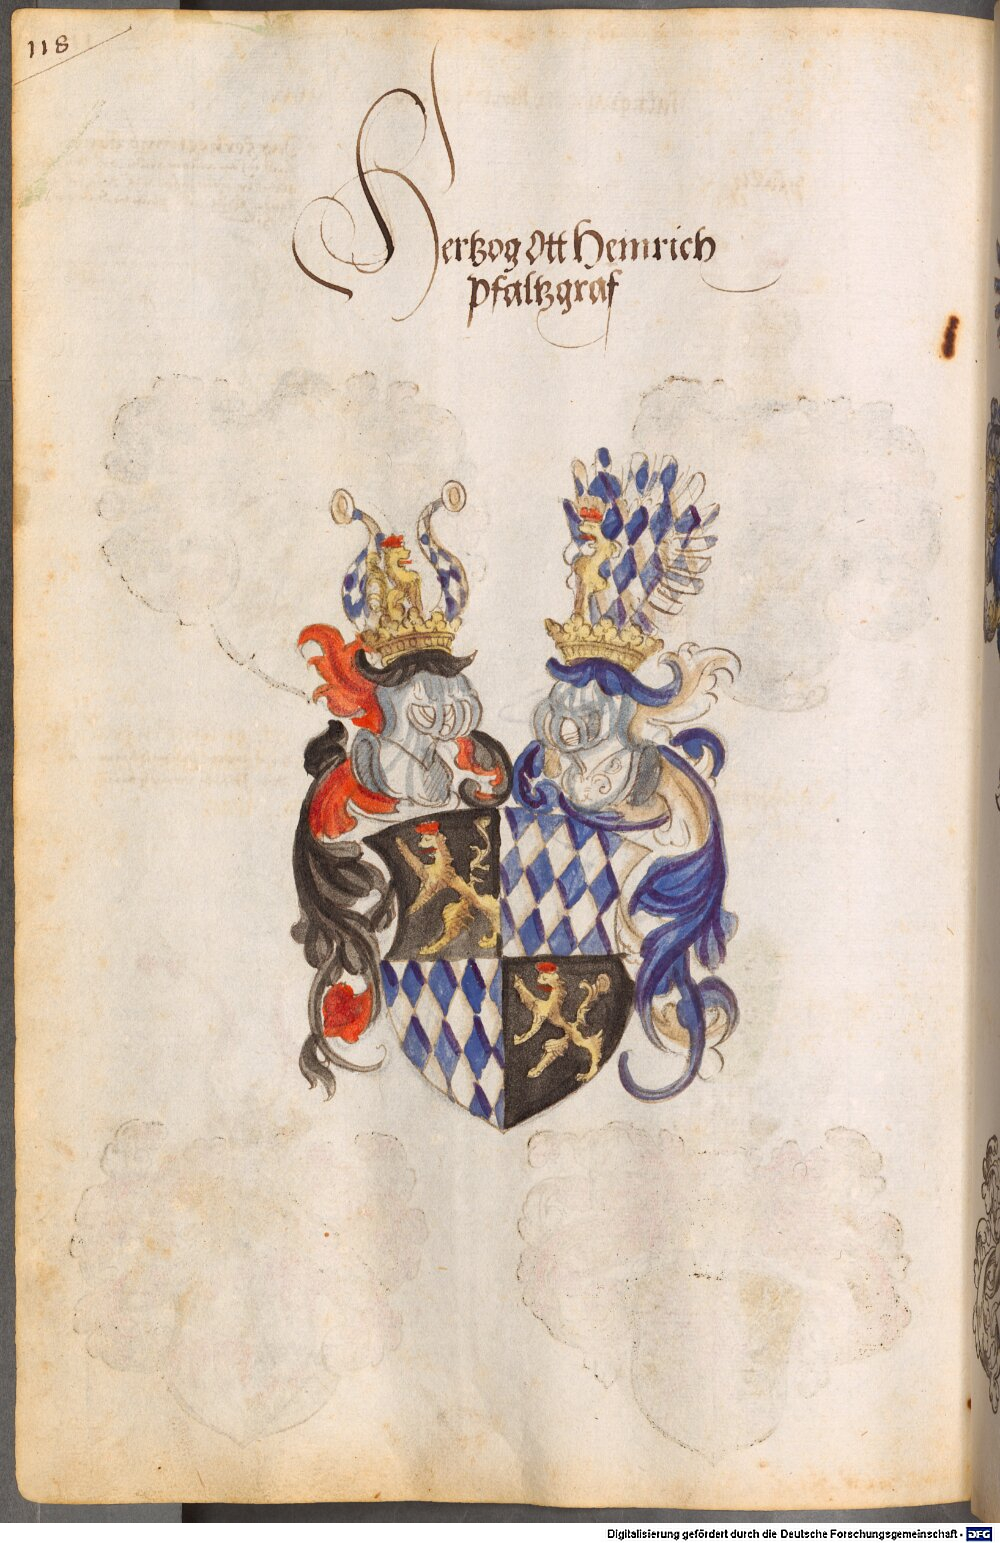 118
Hertzog Ott Heinrich
pfaltzgraf
Digitalisierung gefördert durch die Deutsche Forschungsgemeinschaft - DFG